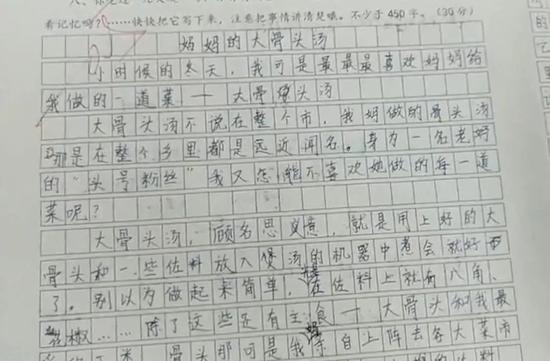 看记忆吗?……快快把它写下来,注意把事情讲清楚哦。不少于450字。(30分)
妈妈的大骨头汤
小时候的冬天,我可是最最最喜欢妈妈给
我做的一道菜——大骨头汤
大骨头汤不说在整个市,我妈做的骨头汤
那是在整个乡里都是远近闻名。身为一名老妈
的“头号粉丝”我又怎能不喜欢她做的每一道
菜呢?
大骨头汤,顾名思义,就是用上好的大
骨头和一些佐料放入煲汤的机器中煮会就好
了。别以为做起来简单,在佐料上就有八角、
……除了这些还有主食——大骨头和我最
骨头那可是我亲自上阵去各大菜市